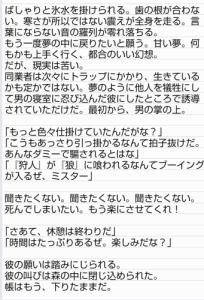 ぱしゃりと氷水を掛けられる。歯の根が合わな
い。寒さが所以ではない震えが全身を走る。言
葉にならない音の羅列が零れ落ちる。
もう一度夢の中に戻りたいと願う。甘い夢。何
もかも上手く行く、都合のいい幻想。
だが、現実は苦い。
同業者は次々にトラップにかかり、生きている
かも定かではない。夢のように他人を犠牲にし
て男の寝室に忍び込んだ彼にしたところで誘導
されていただけだ。最初から、男の掌の上。
「もっと色々仕掛けていたんだがな？」
「こうもあっさり引っ掛かるなんて拍子抜けだ。
あんなダミーで騙されるとはな」
「『狩人』が『狼』に喰われるなんてブーイング
が入るぜ、ミスター」
聞きたくない。聞きたくない。聞きたくない。
死んでしまいたい。もう楽にさせてくれ！
「さあて、休憩は終わりだ」
「時間はたっぷりあるぜ。楽しみだな？」
彼の願いは踏みにじられる。
彼の叫びは森の中に閉じ込められた。
帳はもう、下りたままだ。